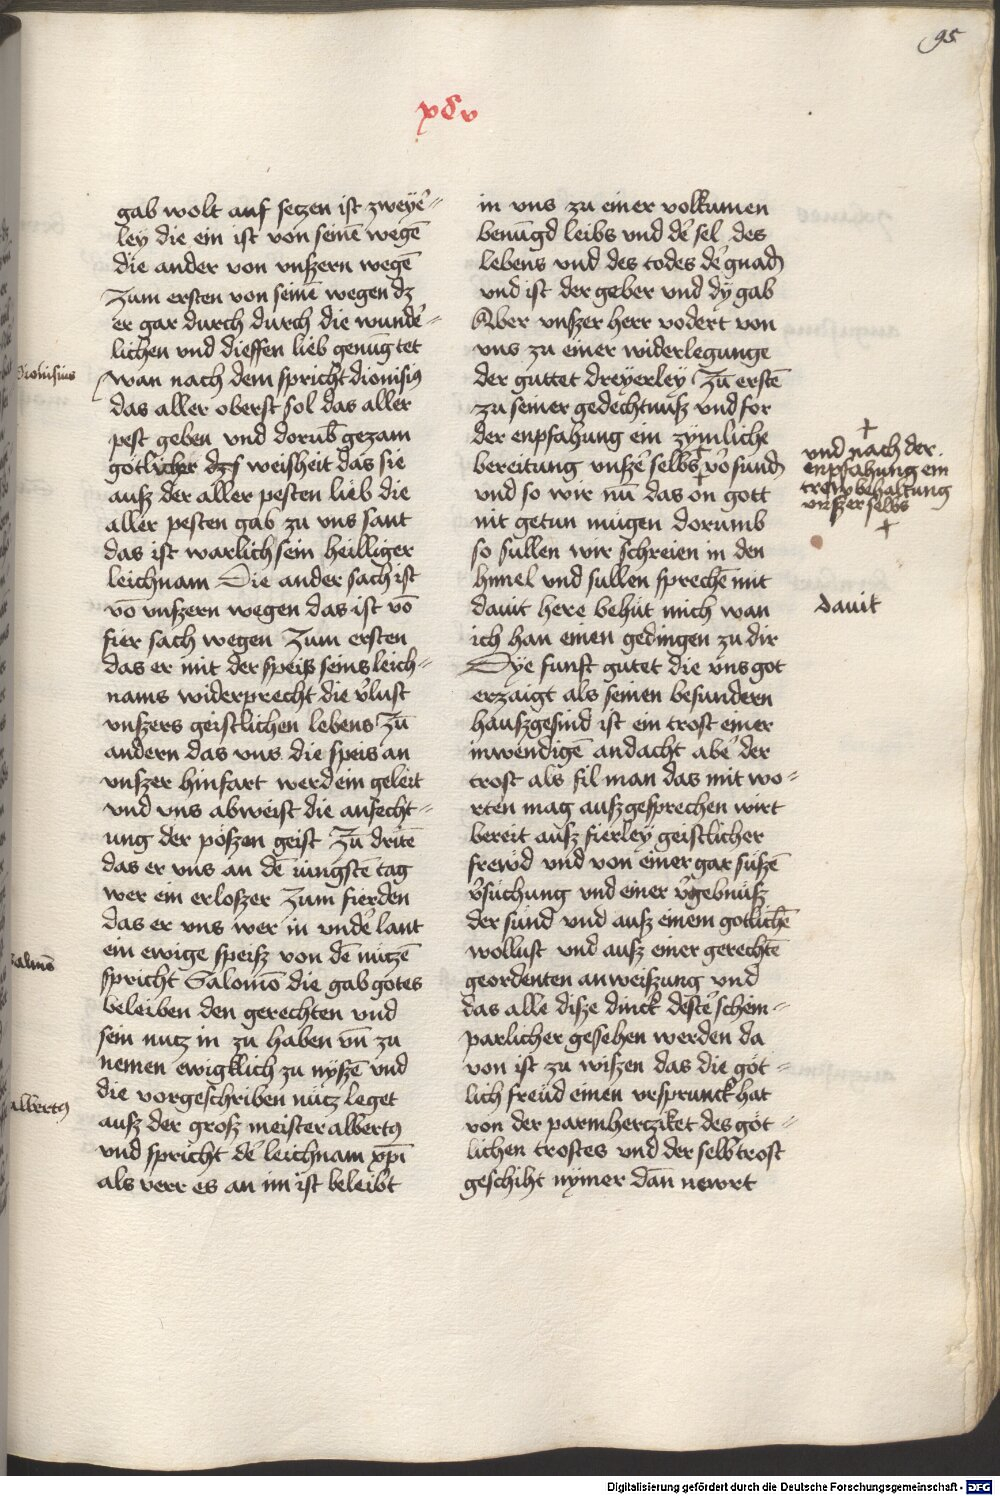 95
xcv
gab wolt auf seczen ist zweye᷑=
ley die ein ist von seinē wegē
die ander von vnszern wegē
Zum ersten von seinē wegen dz
er gar durch durch die wunde᷑=
lichen vnd dieffen lieb genugtet
wan nach dem spricht dionisiꝰ
das aller oberst sol das aller
pest geben vnd dorūb gezam
götlicher weisheit das sie
ausz der aller pesten lieb die
aller pesten gab zu vns sant
das ist warlich sein heilliger
leichnam Die ander sach ist
vō vnszern wegen das ist vō
fier sach wegen Zum ersten
das er mit der speis seins leich=
nams widerprecht die v᷑lust
vnszers geistlichen lebens Zū
andern das vns die speis an
vnszer hinfart werd ein geleit
vnd vns abweist die anfecht=
ung der pöszen geist Zū dritē
das er vns an dē iungstē tag
wer ein erloszer Zum fierden
das er vns wer in vnde᷑ lant
ein ewige speisz von dē nüczē
spricht Salomō die gab gotes
beleiben den gerechten vnd
sein nutz in zu haben vn̄ zu
nemen ewigklich zu nyszē vnd
die vorgeschriben nücz leget
ausz der grosz meister albertꝰ
vnd spricht de᷑ leichnam xp̄i
als verr es an im ist beleibt
dionisius
salmō
albertꝰ
in vns zu einer volkumen
benügd leibs vnd de᷑ sel des
lebens vnd des todes de᷑ gnadn̄
vnd ist der geber vnd dy gab
Aber vnszer herr vodert von
vns zu einer widerlegunge
der guttet dreyerley Zū erstē
zu seiner gedechtnusz vnd for
der enpfahung ein zymliche
bereitung vnsze᷑ selbs vō sundn̄
vnd so wir nū das on gott
nit getun mügen dorumb
so sullen wir schreien in den
himel vnd sullen sprechē mit
dauit here behüt mich wan
ich han einen gedingen zu dir
Dye funft gutet die vns got
erzaigt als seinen besundern
hauszgesind ist ein trost einer
inwendigē andacht abe᷑ der
trost als fil man das mit wo=
rten mag auszgesprechen wirt
bereit ausz fierley geistlicher
frewd vnd von einer gar süszē
v᷑süchung vnd einer v᷑gebnüsz
der sünd vnd ausz einem gotlichē
wollust vnd ausz einer gerechtē
geordenten anweiszung vnd
das alle disze dinck deste᷑ schein=
parlicher gesehen werden da
von ist zu wiszen das die göt=
lich freüd einen vrsprunck hat
von der parmhercziket des göt=
lichen trostes vnd der selb trost
geschiht nymer dān newrt
vnd nach der
enpfahung ein
trew behaltung
vnszer selbs
dauit
Digitalisierung gefördert durch die Deutsche Forschungsgemeinschaft - DFG